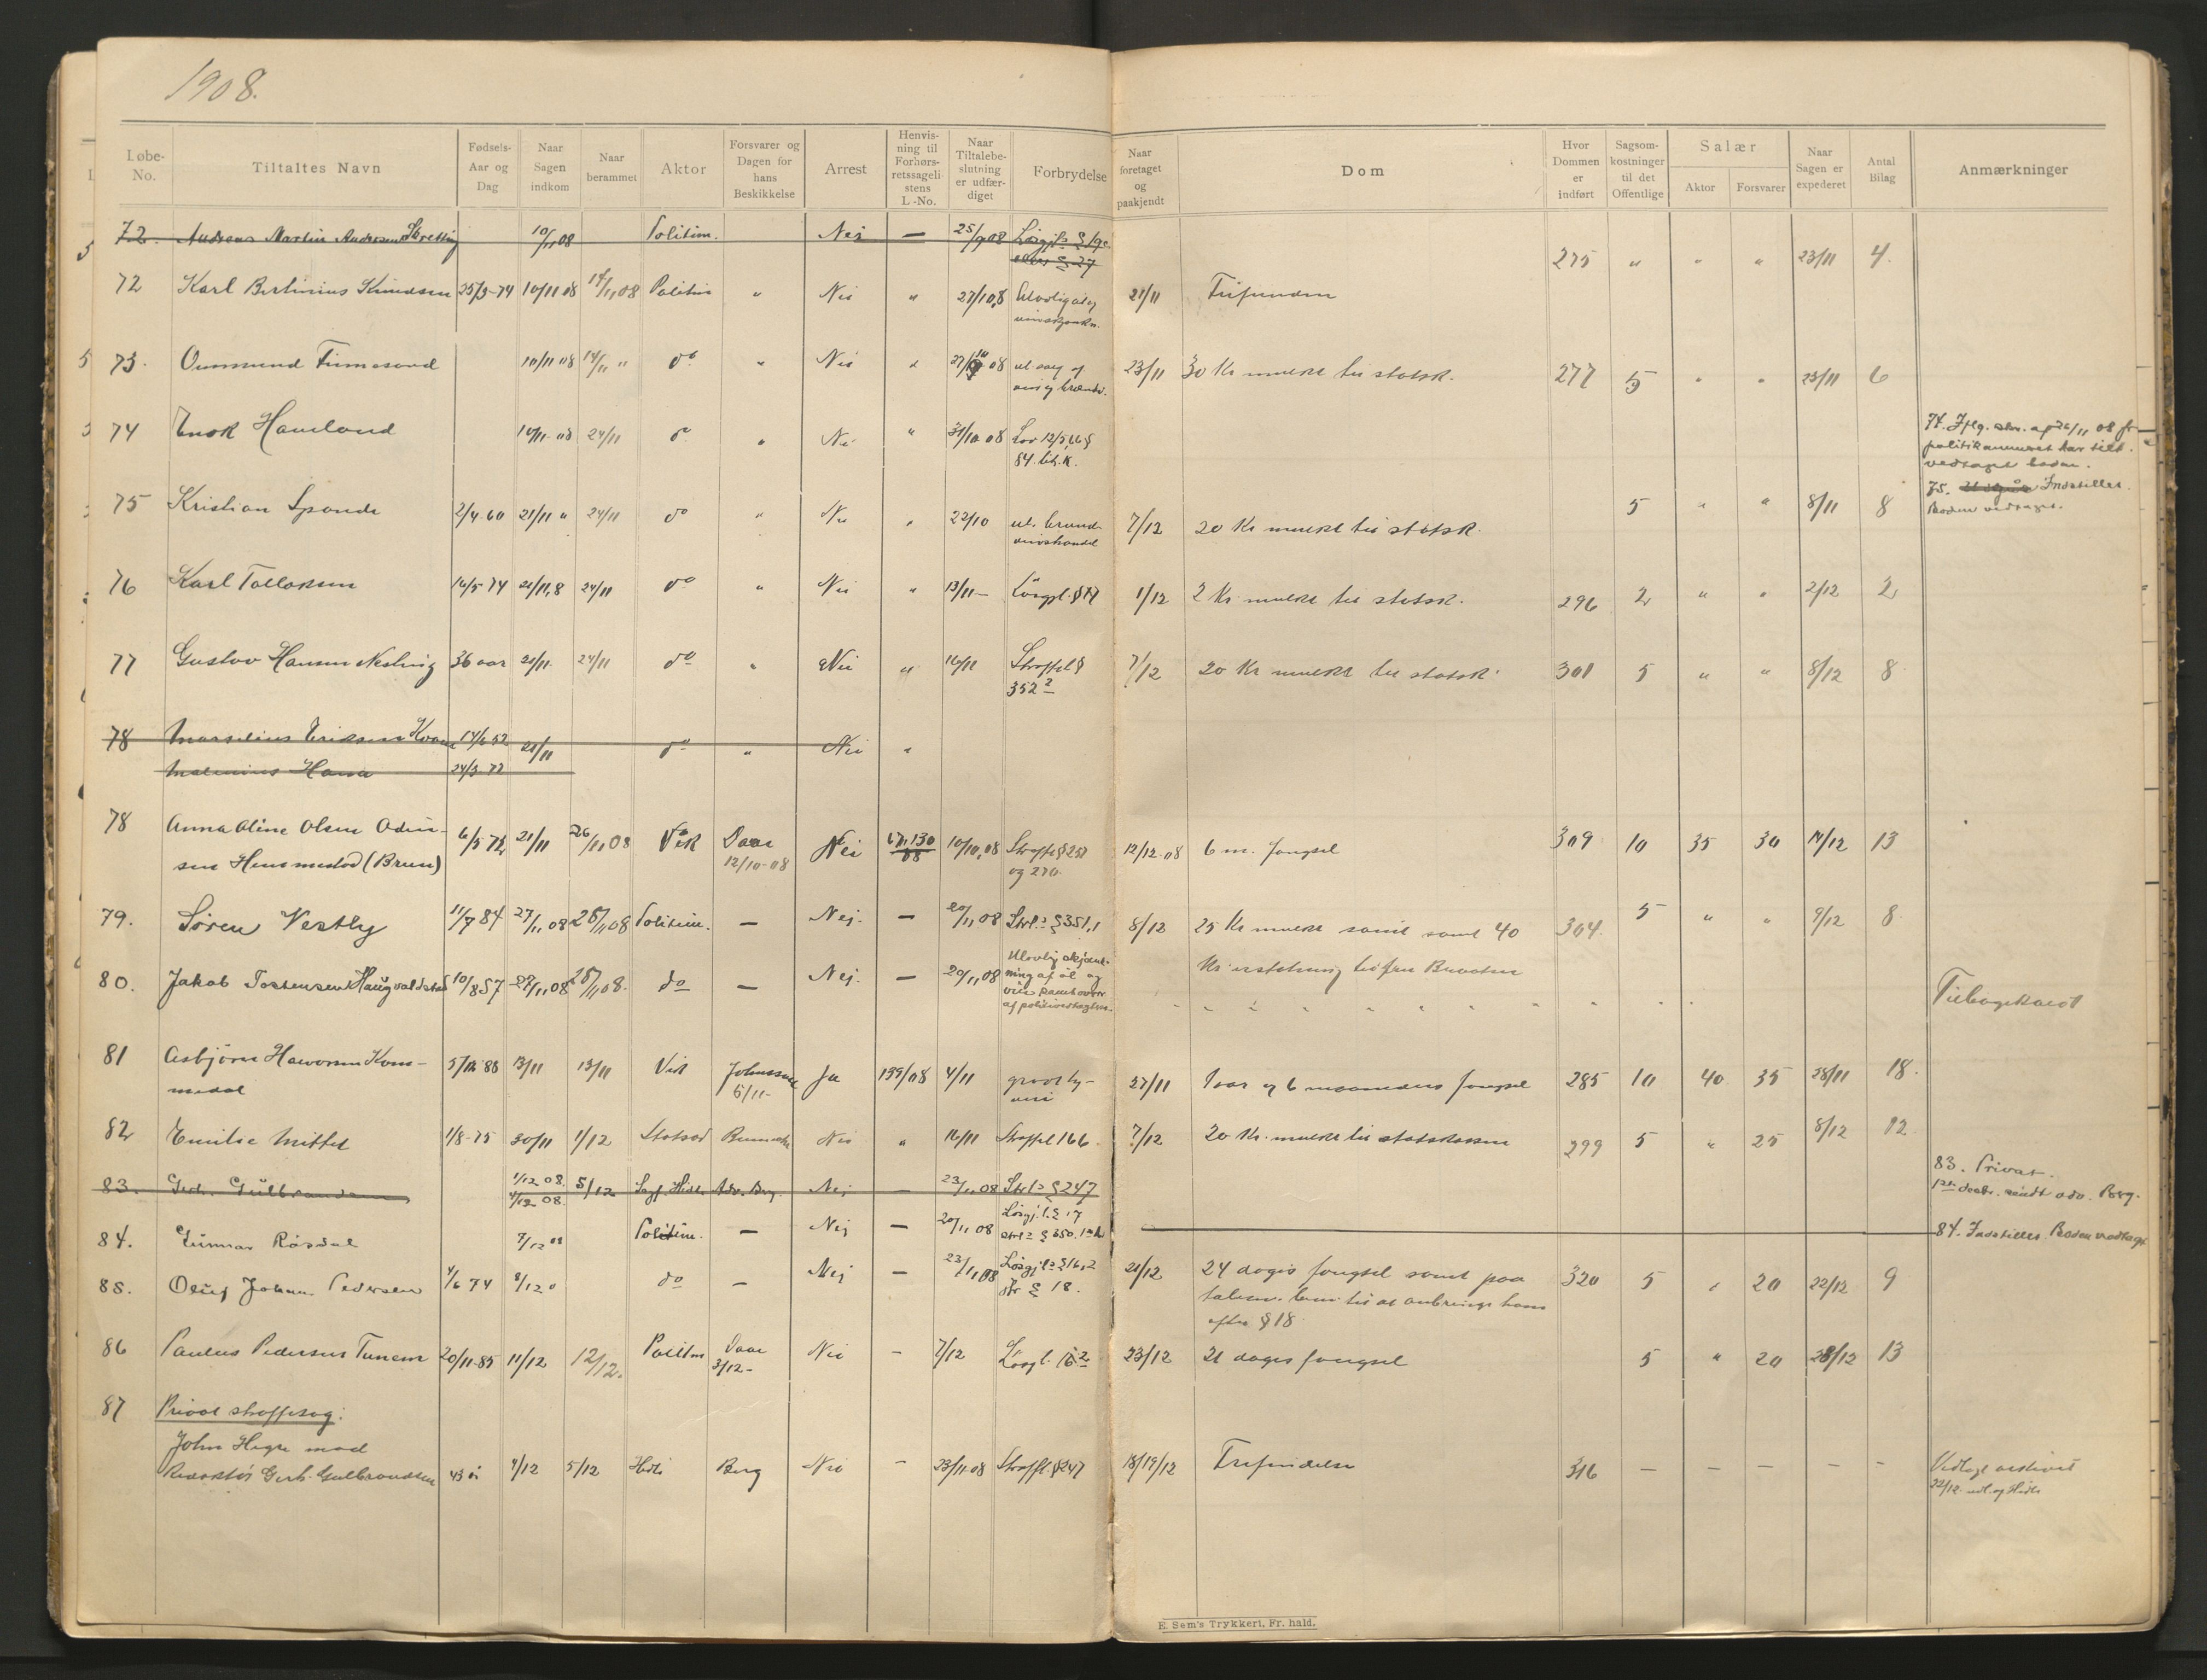 1908.
Løbe-No. Tiltaltes Navn Fødsels-Aar og Dag Naar Sagen indkom Naar berammet Aktor Forsvarer og Dagen for hans Beskikkelse Arrest Henvisning til Forhørsretssagelistens L.-No. Naar Tiltalebeslutning er udfærdiget Forbrydelse Naar foretaget og paakjendt Dom Hvor Dommen er indført Sagsomkostninger til det Offentlige Salær Aktor Forsvarer Naar Sagen er expederet Antal Bilag Anmærkninger
72. Andreas Martin Andersen 10/11 08 Politim. Nei — 25/9 08 Løsgjl.s § 19
275 " " " 23/11 4.
72 Karl Bertinius Knudsen 25/3-74 10/11 08 14/11 08 Politim " Nei " 27/10,8 21/11 Frifunden
73. Ommund Timesand 10/11 08 14/11 " do " Nei " 27/10 08 ul. salg af 23/11 30 Kr mulkt til statsk. 277 5 " " 23/11 6
vin og brændv.
74 Enok Hamland 14/11 08 24/11 do " Nei " 31/10 08 Lov 12/5,66 §
84. lit. K.
74. Iflg. skr. af 26/11 08 fr
politikammeret har tilt.
vedtaget boden.
75 Kristian Spande 2/4 60 21/11 " 24/11 do " Nei " 22/10 ul. brænde- 7/12 20 Kr mulkt til statsk. 5 " " 8/11 8
vinshandel
75. Indstilles.
Boden vedtaget.
76 Karl Tollaksen 16/5 74 21/11,8 24/11 do " Nei " 13/11 — Løsgl. § 17 1/12 2 Kr mulkt til statssk. 296 2 " " 2/12 2
77 Gustav Hansen Nesling 36 aar 21/11. 24/11 do " Nei " 16/11 Straffel § 7/12 20 Kr mulkt til statssk. 301 5 " " 8/12 8
352 2
78 Marselius Eriksen 14/6 52 21/11 do " Nei "
24/3 72
78 Anna Aline Olsen Odin- 6/5 72 21/11 26/11 08 Vik Daae Nei 10/10,08 12/12 08 6 m. fængsel 309 10 35 30 14/12 13
sen (Bruns) 12/10-08 08 og 270.
79. Søren Vestly 11/7 84 27/11 08 28/11 08 Politim. — Nej. — 20/11 08 Strl.s § 351,1 8/12 25 Kr mulkt samt 40 304. 5 " " 9/12 8
Kr erstatning til
80. Jakob Tostensen Haugvaldstad 10/8 57 27/11 08 28/11 08. do — Nej. — 20/11 08 Ulovlig skjænk-
ning af øl og
vin samt
Tilbagekaldt
81 Asbjørn Haworsen Kom- 5/12 88 13/11 13/11 Vik Johnssen Ja 139/08 4/11 grovt ty- 27/11 1 aar og 6 maaneders fængsel 285 10 40 35 28/11 18.
medal 6/11- veri
82 Emilie Mittet 1/8-75 30/11 1/12 Statsad Nei " 16/11 Straffel 166. 7/12 20 Kr. mulkt til statskassen 299 5 " 25 8/12 12
83. Gerh. Gulbrandsen 1/12 08. 5/12 Sagf. Hidle Adv. Berg. Nej — 23/11 08 Strl.s § 247
83. Privat.
1ste decbr. sendt adv. Berg.
84. Gunnar Røsdal 7/12 08 Politim. — Nej — 20/11 08 Løsgj.l. § 17
strl.s § 350.
84. Indstilles. Boden vedtaget
85. Oluf Johan Pedersen 4/6 74 8/12 " do — Nej — 23/11 08 Løsgjl.s § 16,2 21/12 24 dages fængsel samt paa 320 5 " 20 22/12 9
jfr § 18. anbringe ham
efter § 18
86 Paulus Pedersen Tunem 20/11-85 11/12 12/12. Politm Daae Nei — 7/12 Løsgl. 16 2 23/12 21 dages fængsel 5 " 20 28/12 13
3/12-
87 Privat straffesag:
John Hegre mod
Redaktør Gerh. Gulbrandsen 43 5/12 Hidle Berg Nei — 23/11-08 Straffl. § 247 18/19/12 Frifindelse 316 — — — — — Vedlagt arkivet
22/12.
E. Sem's Trykkeri, Fr. hald.